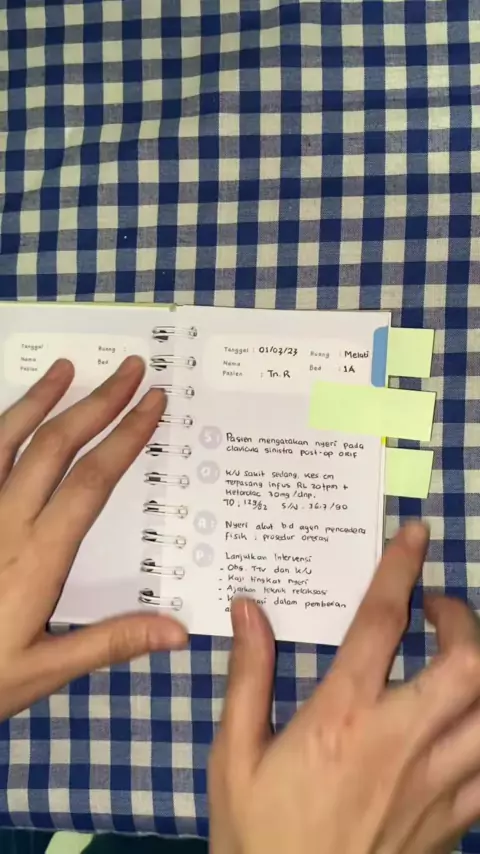 Tanggal :
Ruang :
Nama
Pasien
Bed
Tanggal : 01/03/23
Ruang : Melati
Nama
Pasien : Tn. R
Bed : 1A
S: Pasien mengatakan nyeri pada
clavicula sinistra post-op ORIF
O: K/U sakit sedang, kes cm
Terpasang infus RL 20 tpm +
Ketorolac 30mg /drip.
TD : 129/82 S/N : 36.7/90
A: Nyeri akut bd agen pencedera
fisik : prosedur operasi
P: Lanjutkan Intervensi
- Obs. TTV dan K/U
- Kaji tingkat nyeri
- Ajarkan teknik relaksasi
dalam pemberian